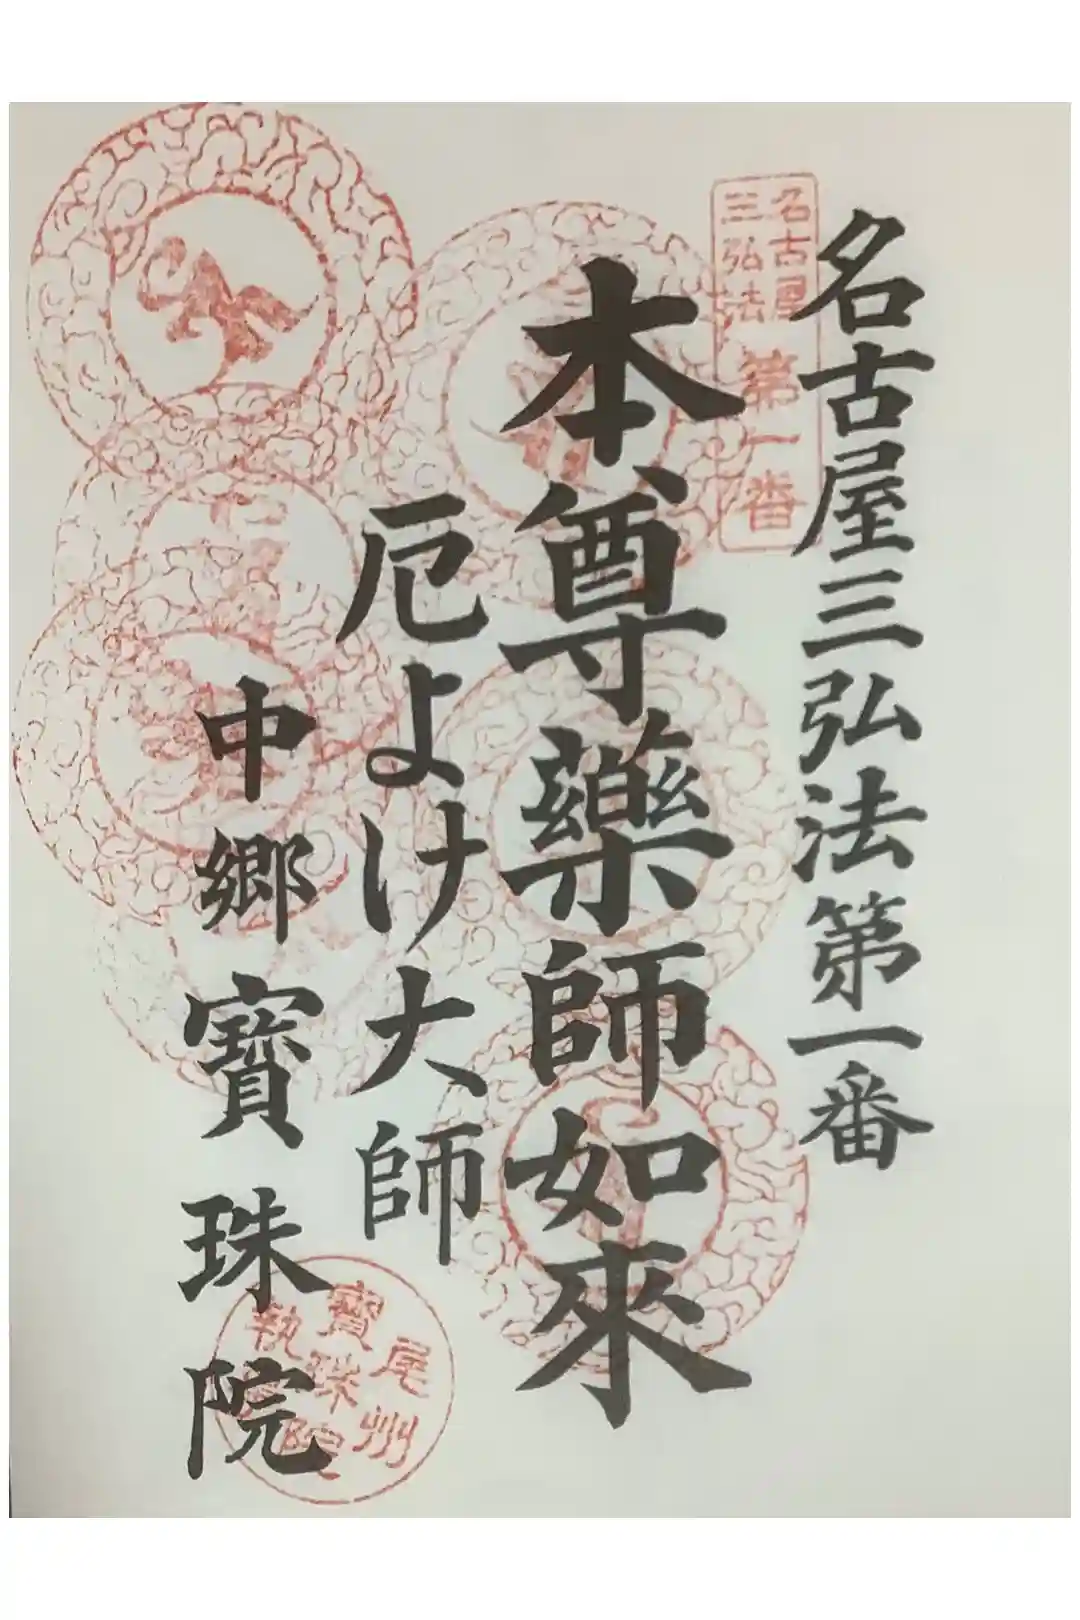 名古屋三弘法第一番
名古屋
三弘法
第一番
本尊薬師如來
厄よけ大師
中郷寶珠院
尾州
寶珠院
執